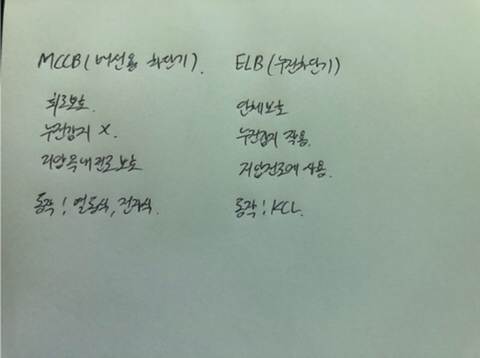 MCCB (배선용 차단기).
회로보호.
누전감지 X.
저압옥내전로보호
동작 : 열동식, 전자식.
ELB (누전차단기)
인체보호
누전감지 작동.
저압전로에 사용.
동작 : KCL.